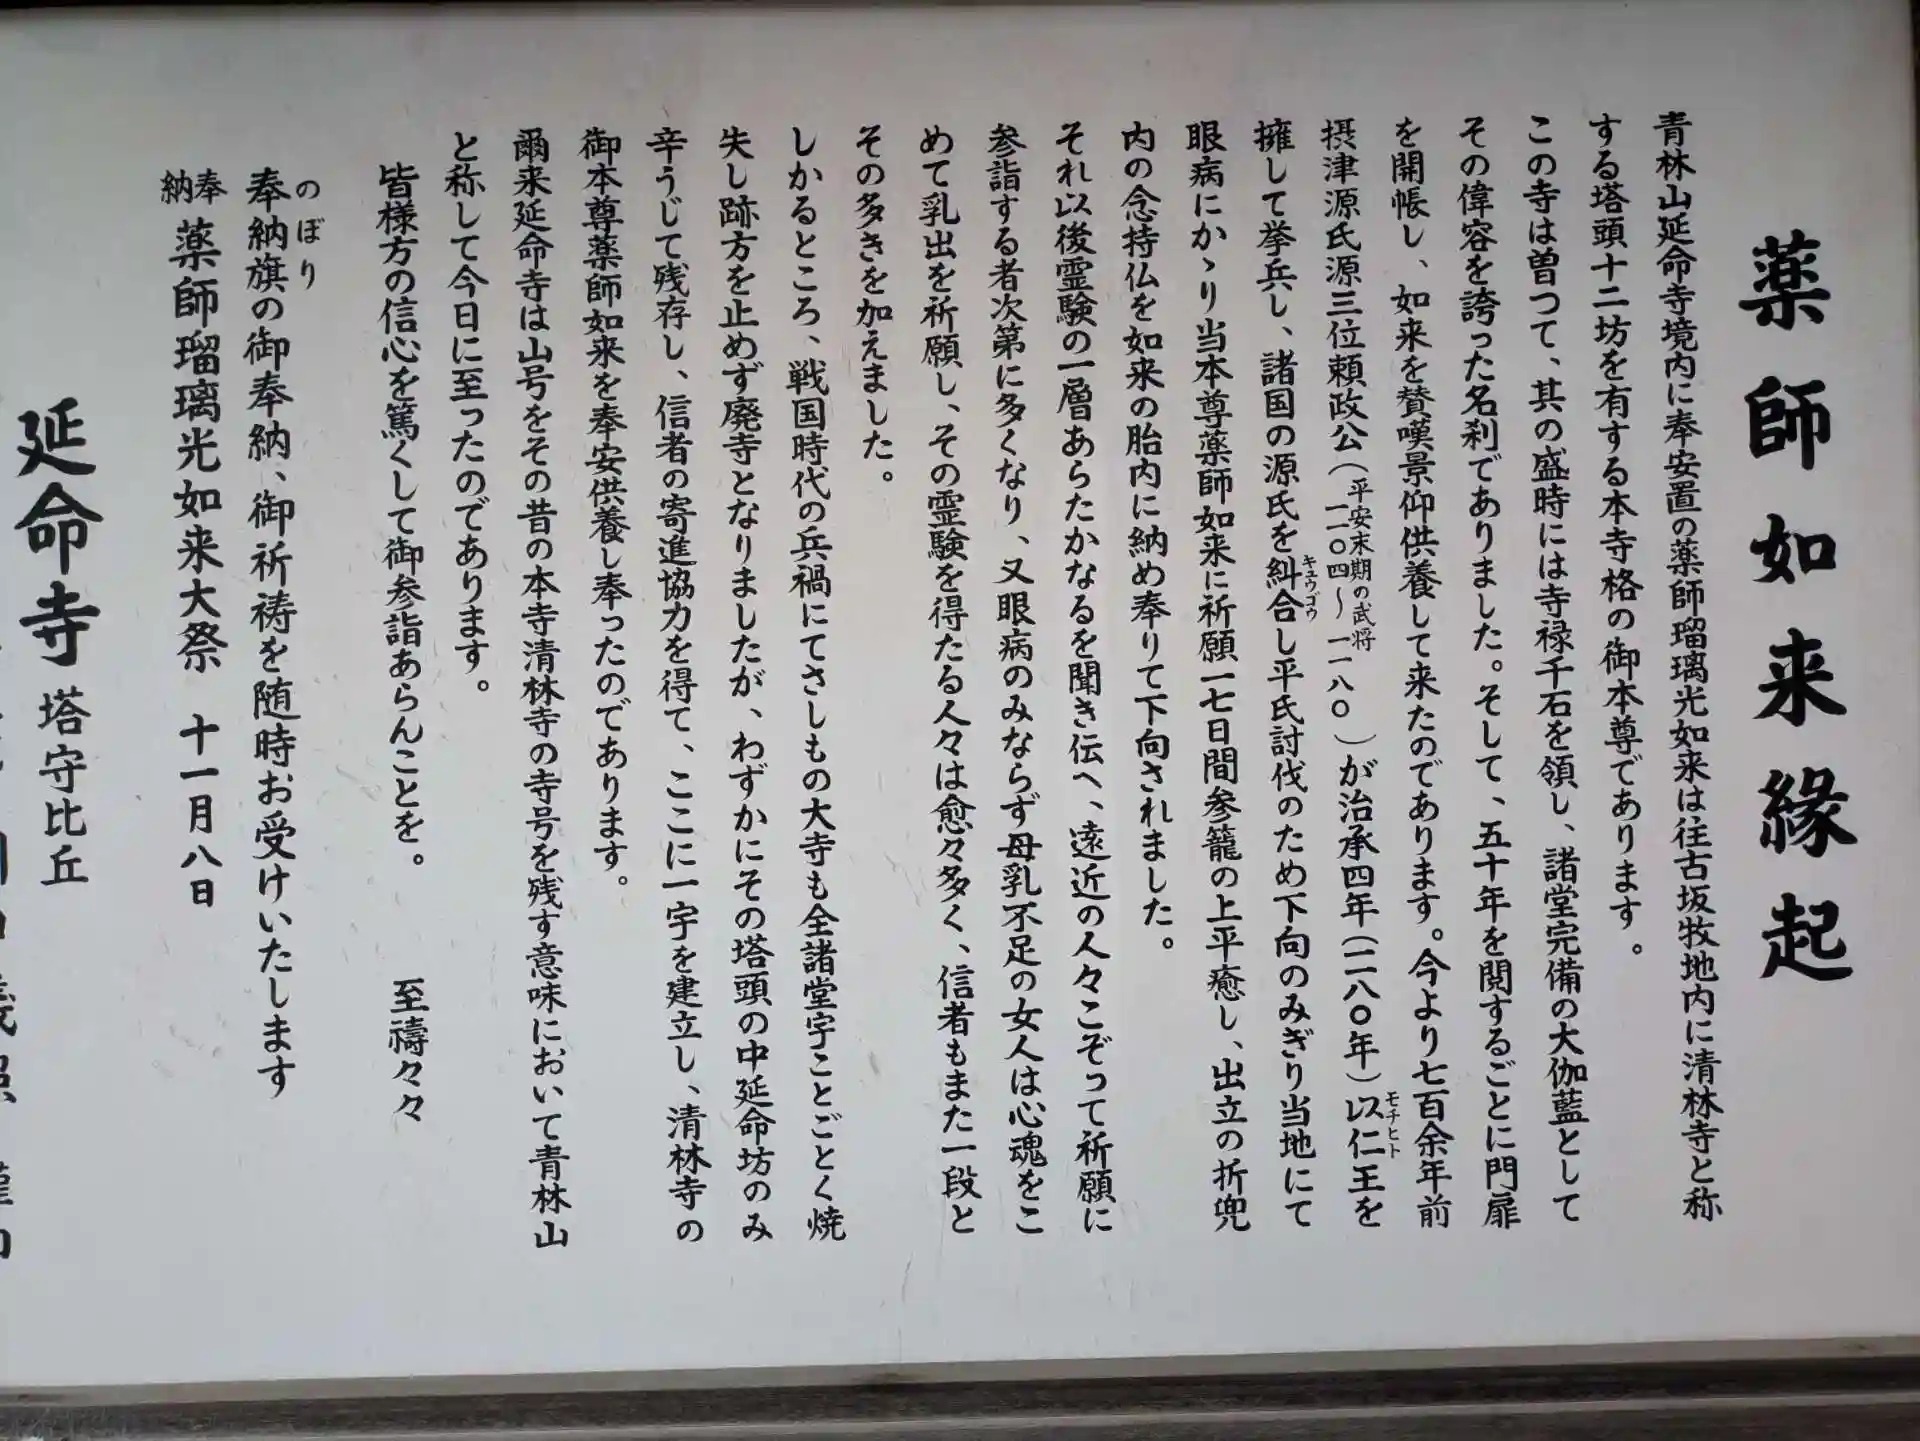 薬師如来縁起
青林山延命寺境内に奉安置の薬師瑠璃光如来は往古坂牧地内に清林寺と称
する塔頭十二坊を有する本寺格の御本尊であります。
この寺は曽つて、其の盛時には寺禄千石を領し、諸堂完備の大伽藍として
その偉容を誇った名刹でありました。そして、五十年を閲するごとに門扉
を開帳し、如来を賛嘆景仰供養して来たのであります。今より七百余年前
摂津源氏源三位頼政公（平安末期の武将一一〇四〜一一八〇）が治承四年（一一八〇年）以仁王を
モチヒト
擁して挙兵し、諸国の源氏を糾合し平氏討伐のため下向のみぎり当地にて
キュウゴウ
眼病にかゝり当本尊薬師如来に祈願一七日間参籠の上平癒し、出立の折兜
内の念持仏を如来の胎内に納め奉りて下向されました。
それ以後霊験の一層あらたかなるを聞き伝へ、遠近の人々こぞって祈願に
参詣する者次第に多くなり、又眼病のみならず母乳不足の女人は心魂をこ
めて乳出を祈願し、その霊験を得たる人々は愈々多く、信者もまた一段と
その多きを加えました。
しかるところ、戦国時代の兵禍にてさしもの大寺も全諸堂宇ことごとく焼
失し跡方を止めず廃寺となりましたが、わずかにその塔頭の中延命坊のみ
辛うじて残存し、信者の寄進協力を得て、ここに一宇を建立し、清林寺の
御本尊薬師如来を奉安供養し奉ったのであります。
爾来延命寺は山号をその昔の本寺清林寺の寺号を残す意味において青林山
と称して今日に至ったのであります。
皆様方の信心を篤くして御参詣あらんことを。　至禱々々
のぼり
奉納旗の御奉納、御祈祷を随時お受けいたします
奉納 薬師瑠璃光如来大祭　十一月八日
延命寺 塔守比丘